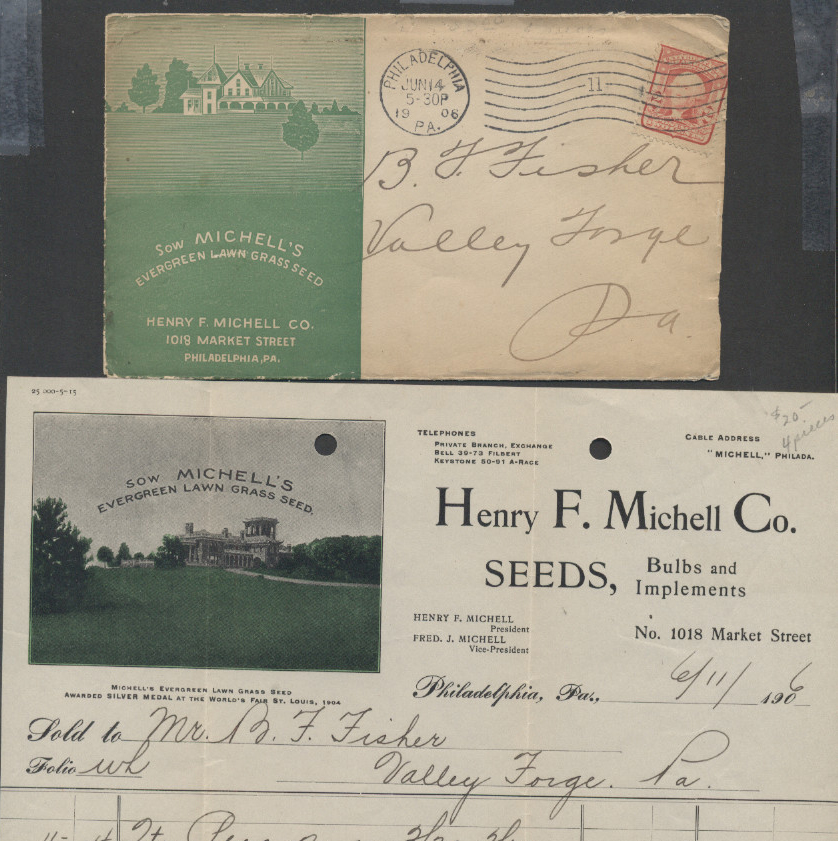 PHILADELPHIA
JUN 14
5-30P
1906
PA.
11
B. F. Fisher
Valley Forge
Pa.
SOW MICHELL'S
EVERGREEN LAWN GRASS SEED
HENRY F. MICHELL CO.
1018 MARKET STREET
PHILADELPHIA, PA.
$20-
4 pieces
TELEPHONES
PRIVATE BRANCH, EXCHANGE
BELL 39-73 FILBERT
KEYSTONE 50-91 A-RACE
CABLE ADDRESS
"MICHELL," PHILADA.
SOW MICHELL'S
EVERGREEN LAWN GRASS SEED.
Henry F. Michell Co.
SEEDS, Bulbs and
Implements
HENRY F. MICHELL
President
FRED. J. MICHELL
Vice-President
No. 1018 Market Street
MICHELL'S EVERGREEN LAWN GRASS SEED
AWARDED SILVER MEDAL AT THE WORLD'S FAIR ST. LOUIS, 1904
Philadelphia, Pa., 6/11/ 1906
Sold to Mr. B. F. Fisher
Folio Wh Valley Forge. Pa.